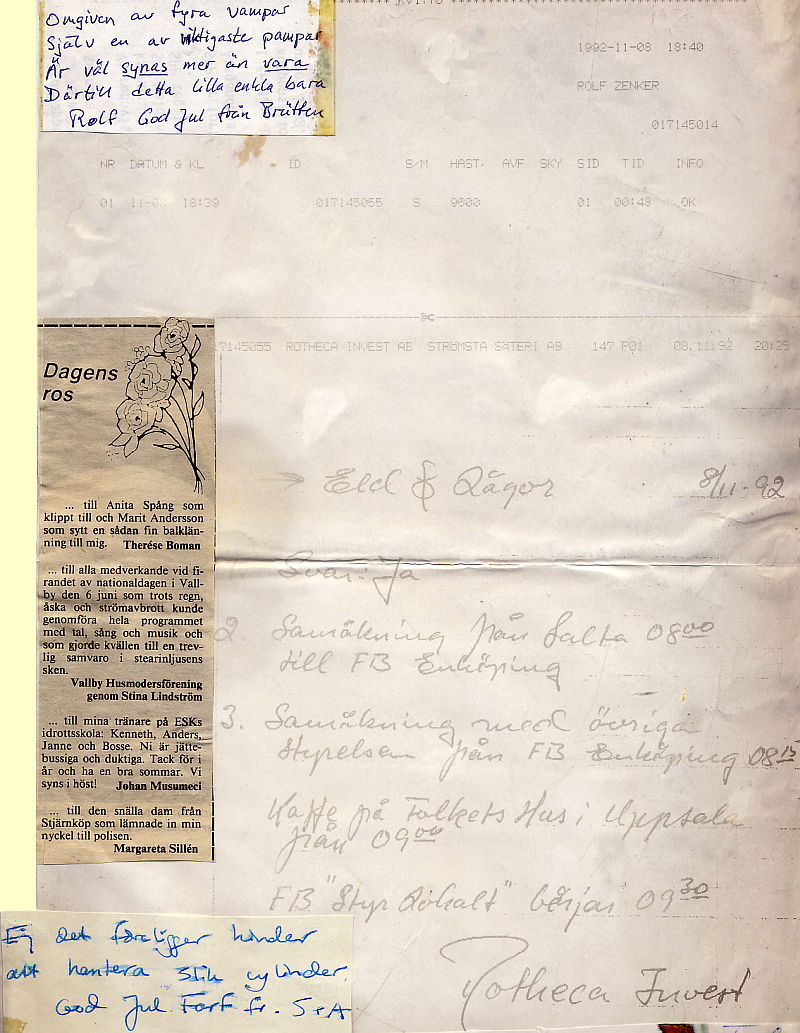 Omgiven av fyra vampar
Själv en av viktigaste pampar
Är väl synas mer än vara
Därtill detta lilla enkla bara
Rolf God Jul från Brütten
1992-11-08 18:40
ROLF ZENKER
017145014
NR DATUM & KL ID S/M HAST. AVF SKY SID TID INFO
01 11-08 18:39 017145055 S 9600 01 00:48 OK
17145055 ROTHECA INVEST AB STRÖMSTA SÄTERI AB 147 P01 08.11.92 20:25
Dagens
ros
... till Anita Spång som
klippt till och Marit Andersson
som sytt en sådan fin balklän-
ning till mig. Therése Boman
... till alla medverkande vid fi-
randet av nationaldagen i Vall-
by den 6 juni som trots regn,
åska och strömavbrott kunde
genomföra hela programmet
med tal, sång och musik och
som gjorde kvällen till en trev-
lig samvaro i stearinljusens
sken.
Vallby Husmodersförening
genom Stina Lindström
... till mina tränare på ESKs
idrottsskola: Kenneth, Anders,
Janne och Bosse. Ni är jätte-
bussiga och duktiga. Tack för i
år och ha en bra sommar. Vi
syns i höst! Johan Musumeci
... till den snälla dam från
Stjärnköp som lämnade in min
nyckel till polisen.
Margareta Sillén
→ Eld & Lågor 8/11-92
Svar: Ja
2. Samåkning från Salta 08 00
till FB Enköping
3. Samåkning med övriga
Styrelsen från FB Enköping 08 15
Kaffe på Folkets Hus i Uppsala
från 09 00
FB "Styr Lokalt" börjar 09 30
Rotheca Invest
Ej det föreligger hinder
att hantera slik cylinder.
God Jul fr. S+A